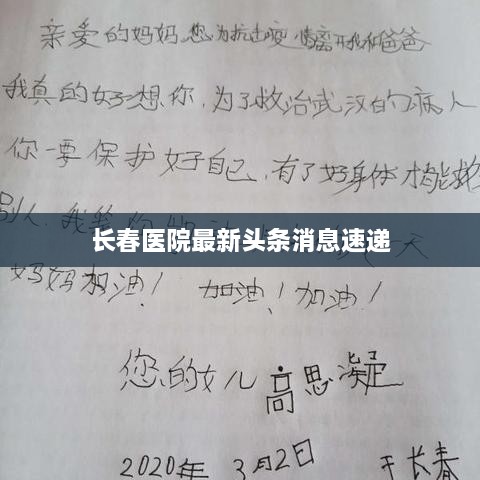 亲爱的妈妈您为抗击疫情离开我和爸爸
我真的好想你,为了救治武汉的病人
你一要保护好自己,有了好身体才能救
别人.我
长春医院最新头条消息速递
一天
妈妈加油!加油!加油!
您的女儿高思凝
2020年3月2日 于长春